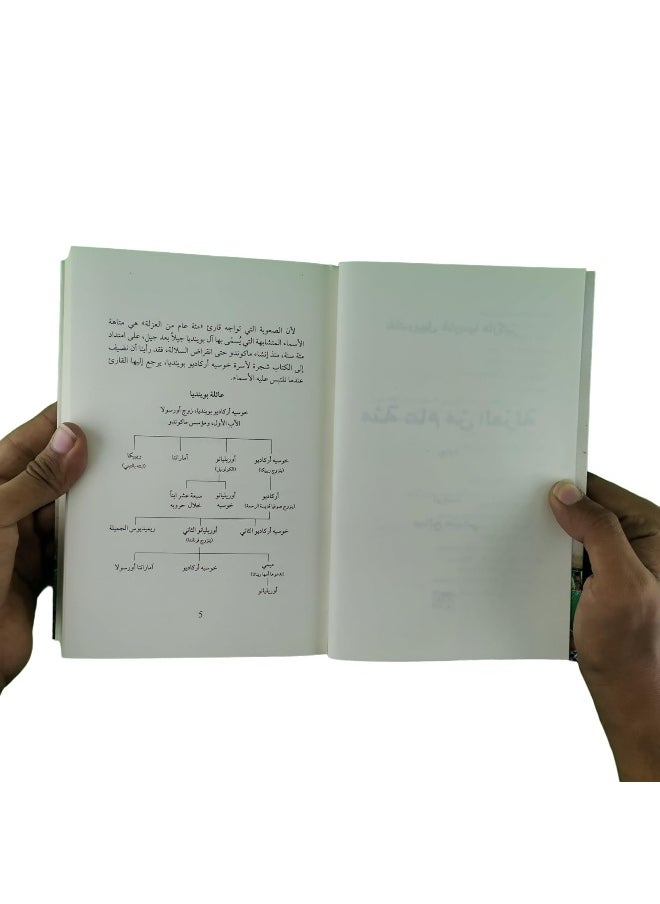 لأن الصعوبة التي تواجه قارئ «مئة عام من العزلة» هي متاهة
الأسماء المتشابهة التي يُسمّى بها آل بوينديا جيلاً بعد جيل، على امتداد
مئة سنة، منذ إنشاء ماكوندو حتى انقراض السلالة، فقد رأينا أن نضيف
إلى الكتاب شجرة لأسرة خوسيه أركاديو بوينديا، يرجع إليها القارئ
عندما تلتبس عليه الأسماء.
عائلة بوينديا
خوسيه أركاديو بوينديا، زوج أورسولا
الأب الأول، ومؤسس ماكوندو
خوسيه أركاديو أوريليانو أمارانتا ريبيكا
(يتزوج ريبيكا) (الكولونيل) (ابنة بالتبني)
أركاديو أوريليانو سبعة عشر ابناً
(يتزوج صوفيا قديسة الرحمة) خوسيه خلال حروبه
خوسيه أركاديو الثاني أوريليانو الثاني ريميديوس الجميلة
(يتزوج فرناندا)
ميمي خوسيه أركاديو أمارانتا أورسولا
أوريليانو
5
مئة عام من العزلة